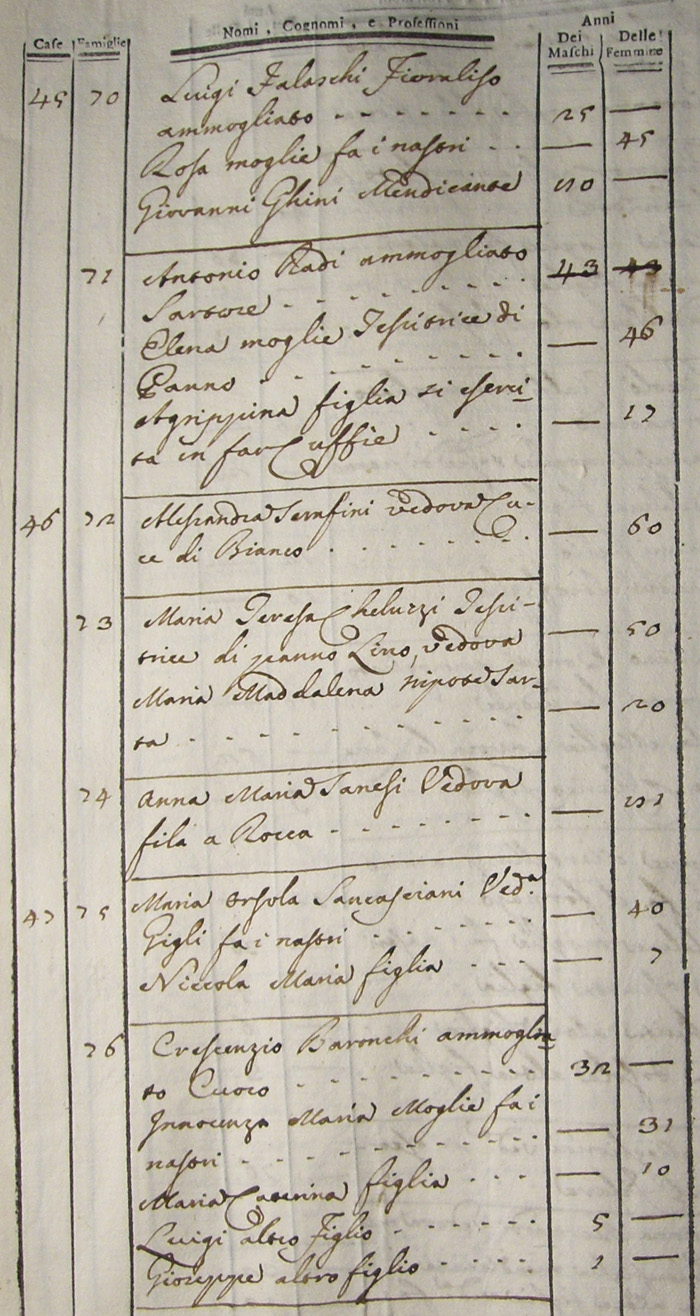 Case Famiglie Nomi, Cognomi, e Professioni Anni
Dei Maschi Delle Femmine
45 70 Luigi Falaschi Fioraliso
ammogliato - - - - - - - 25 —
Rosa moglie fa i nastri - - — 45
Giovanni Ghini Mendicante 50 —
71 Antonio Radi ammogliato 43 43
Sartore - - - - - - -
Elena moglie Tescitrice di — 46
Panno - - - - - - -
Agrippina figlia si eserci= — 17
ta in far Cuffie - - - -
46 72 Alessandra Serafini vedova Cu-
ce di Bianco - - - - - - - — 60
73 Maria Teresa Cheluzzi Tesci-
trice di panno Lino, vedova — 50
Maria Maddalena nipote Sar-
ta - - - - - - - - - - — 20
74 Anna Maria Sanesi Vedova
fila a Rocca - - - - - - - — 51
47 75 Maria Orsola Sancasciani Ved.a
Gigli fa i nastri - - - - - - — 40
Niccola Maria figlia - - - — 7
76 Crescenzio Baronchi ammoglia=
to Cuoco - - - - - - - - 32 —
Innocenza Maria Moglie fa i
nastri - - - - - - - - - — 31
Maria Caterina figlia - - - — 10
Luigi altro Figlio - - - - - - 5 —
Giuseppe altro figlio - - - - 1 —